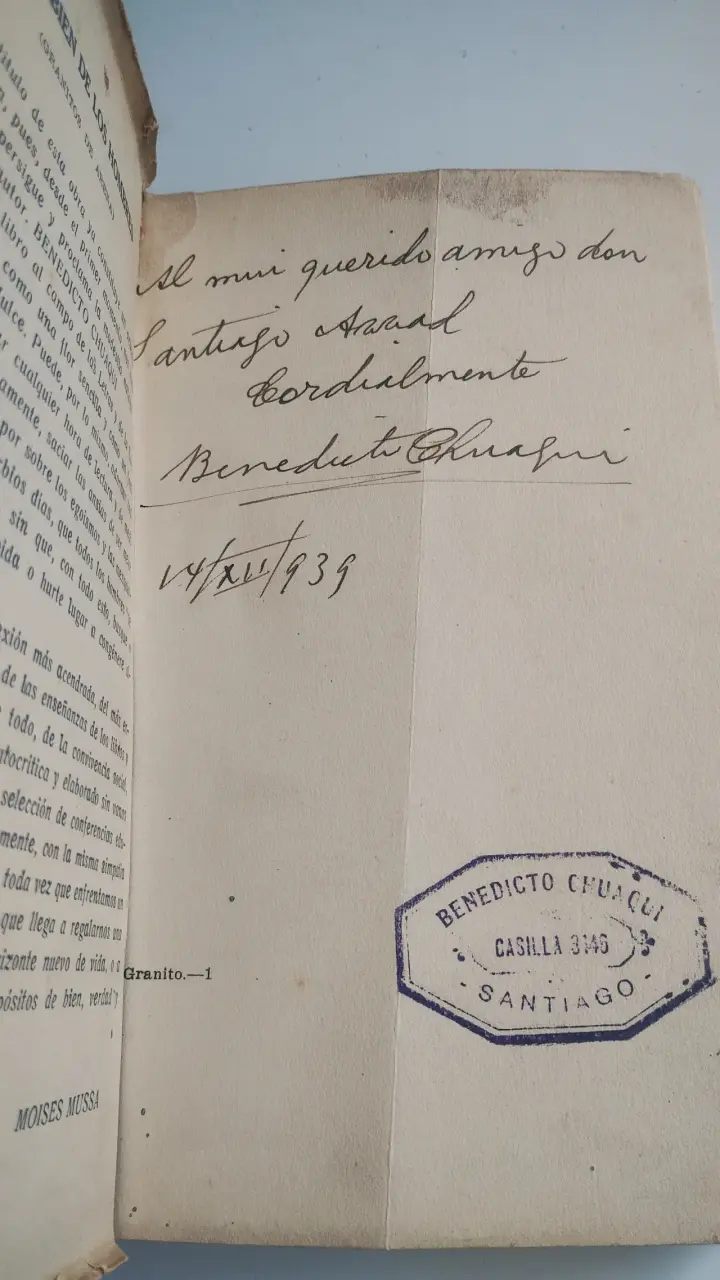 BIEN DE LOS HOMBRES
(GRANITOS DE ARENA)
título de esta obra ya constituye un
pues, desde el primer
persigue y proclama la modestia
autor. BENEDICTO CHUAQUI
libro al campo de las Letras y de la
como una flor sencilla, y como
dulce. Puede, por lo mismo,
cualquier hora de lectura, y de
amente, saciar las ansias de
por sobre los egoísmos y las
días, que todos los hombres
sin que, con todo esto, busque
ida o hurte lugar a congénere
exión más acendrada, del más
de las enseñanzas de los libros y
todo, de la convivencia social,
utocrítica y elaborado sin vanos
selección de conferencias
mente, con la misma simpatía
toda vez que enfrentamos un
que llega a regalarnos una
izonte nuevo de vida, o a
pósitos de bien, verdad y
MOISES MUSSA
Al mui querido amigo don
Santiago Awad
Cordialmente
Benedicto Chuaqui
14/XII/939
Granito.—1
BENEDICTO CHUAQUI
CASILLA 3146
- SANTIAGO -